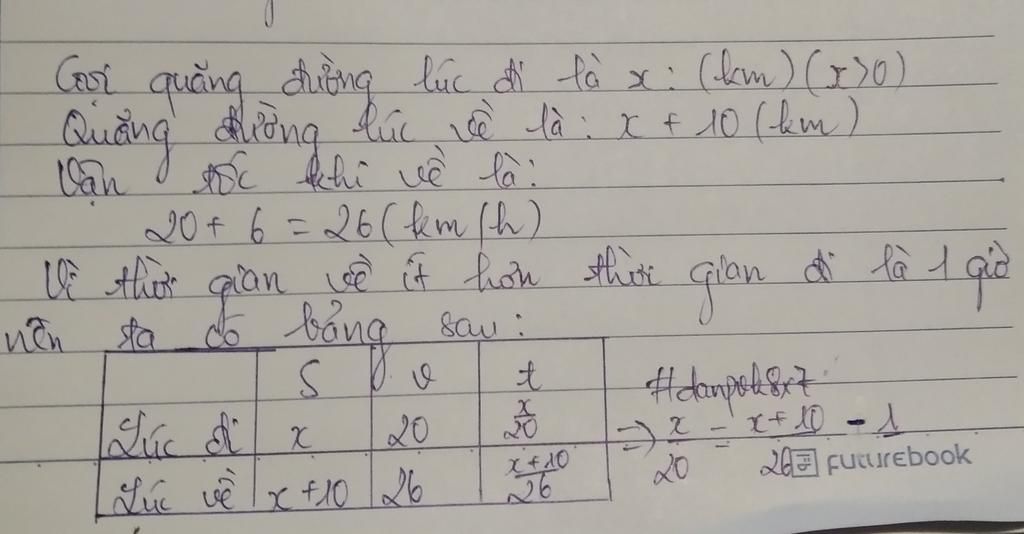 Gọi quãng đường lúc đi là x: (km) (x>0)
Quãng đường lúc về là: x + 10 (km)
Vận tốc khi về là:
20 + 6 = 26 (km/h)
Vì thời gian về ít hơn thời gian đi là 1 giờ
nên ta có bảng sau:
S v t
Lúc đi x 20 x/20
Lúc về x+10 26 x+10/26
#danpok8x7
=> x/20 = x+10/26 - 1
FUTUREBOOK